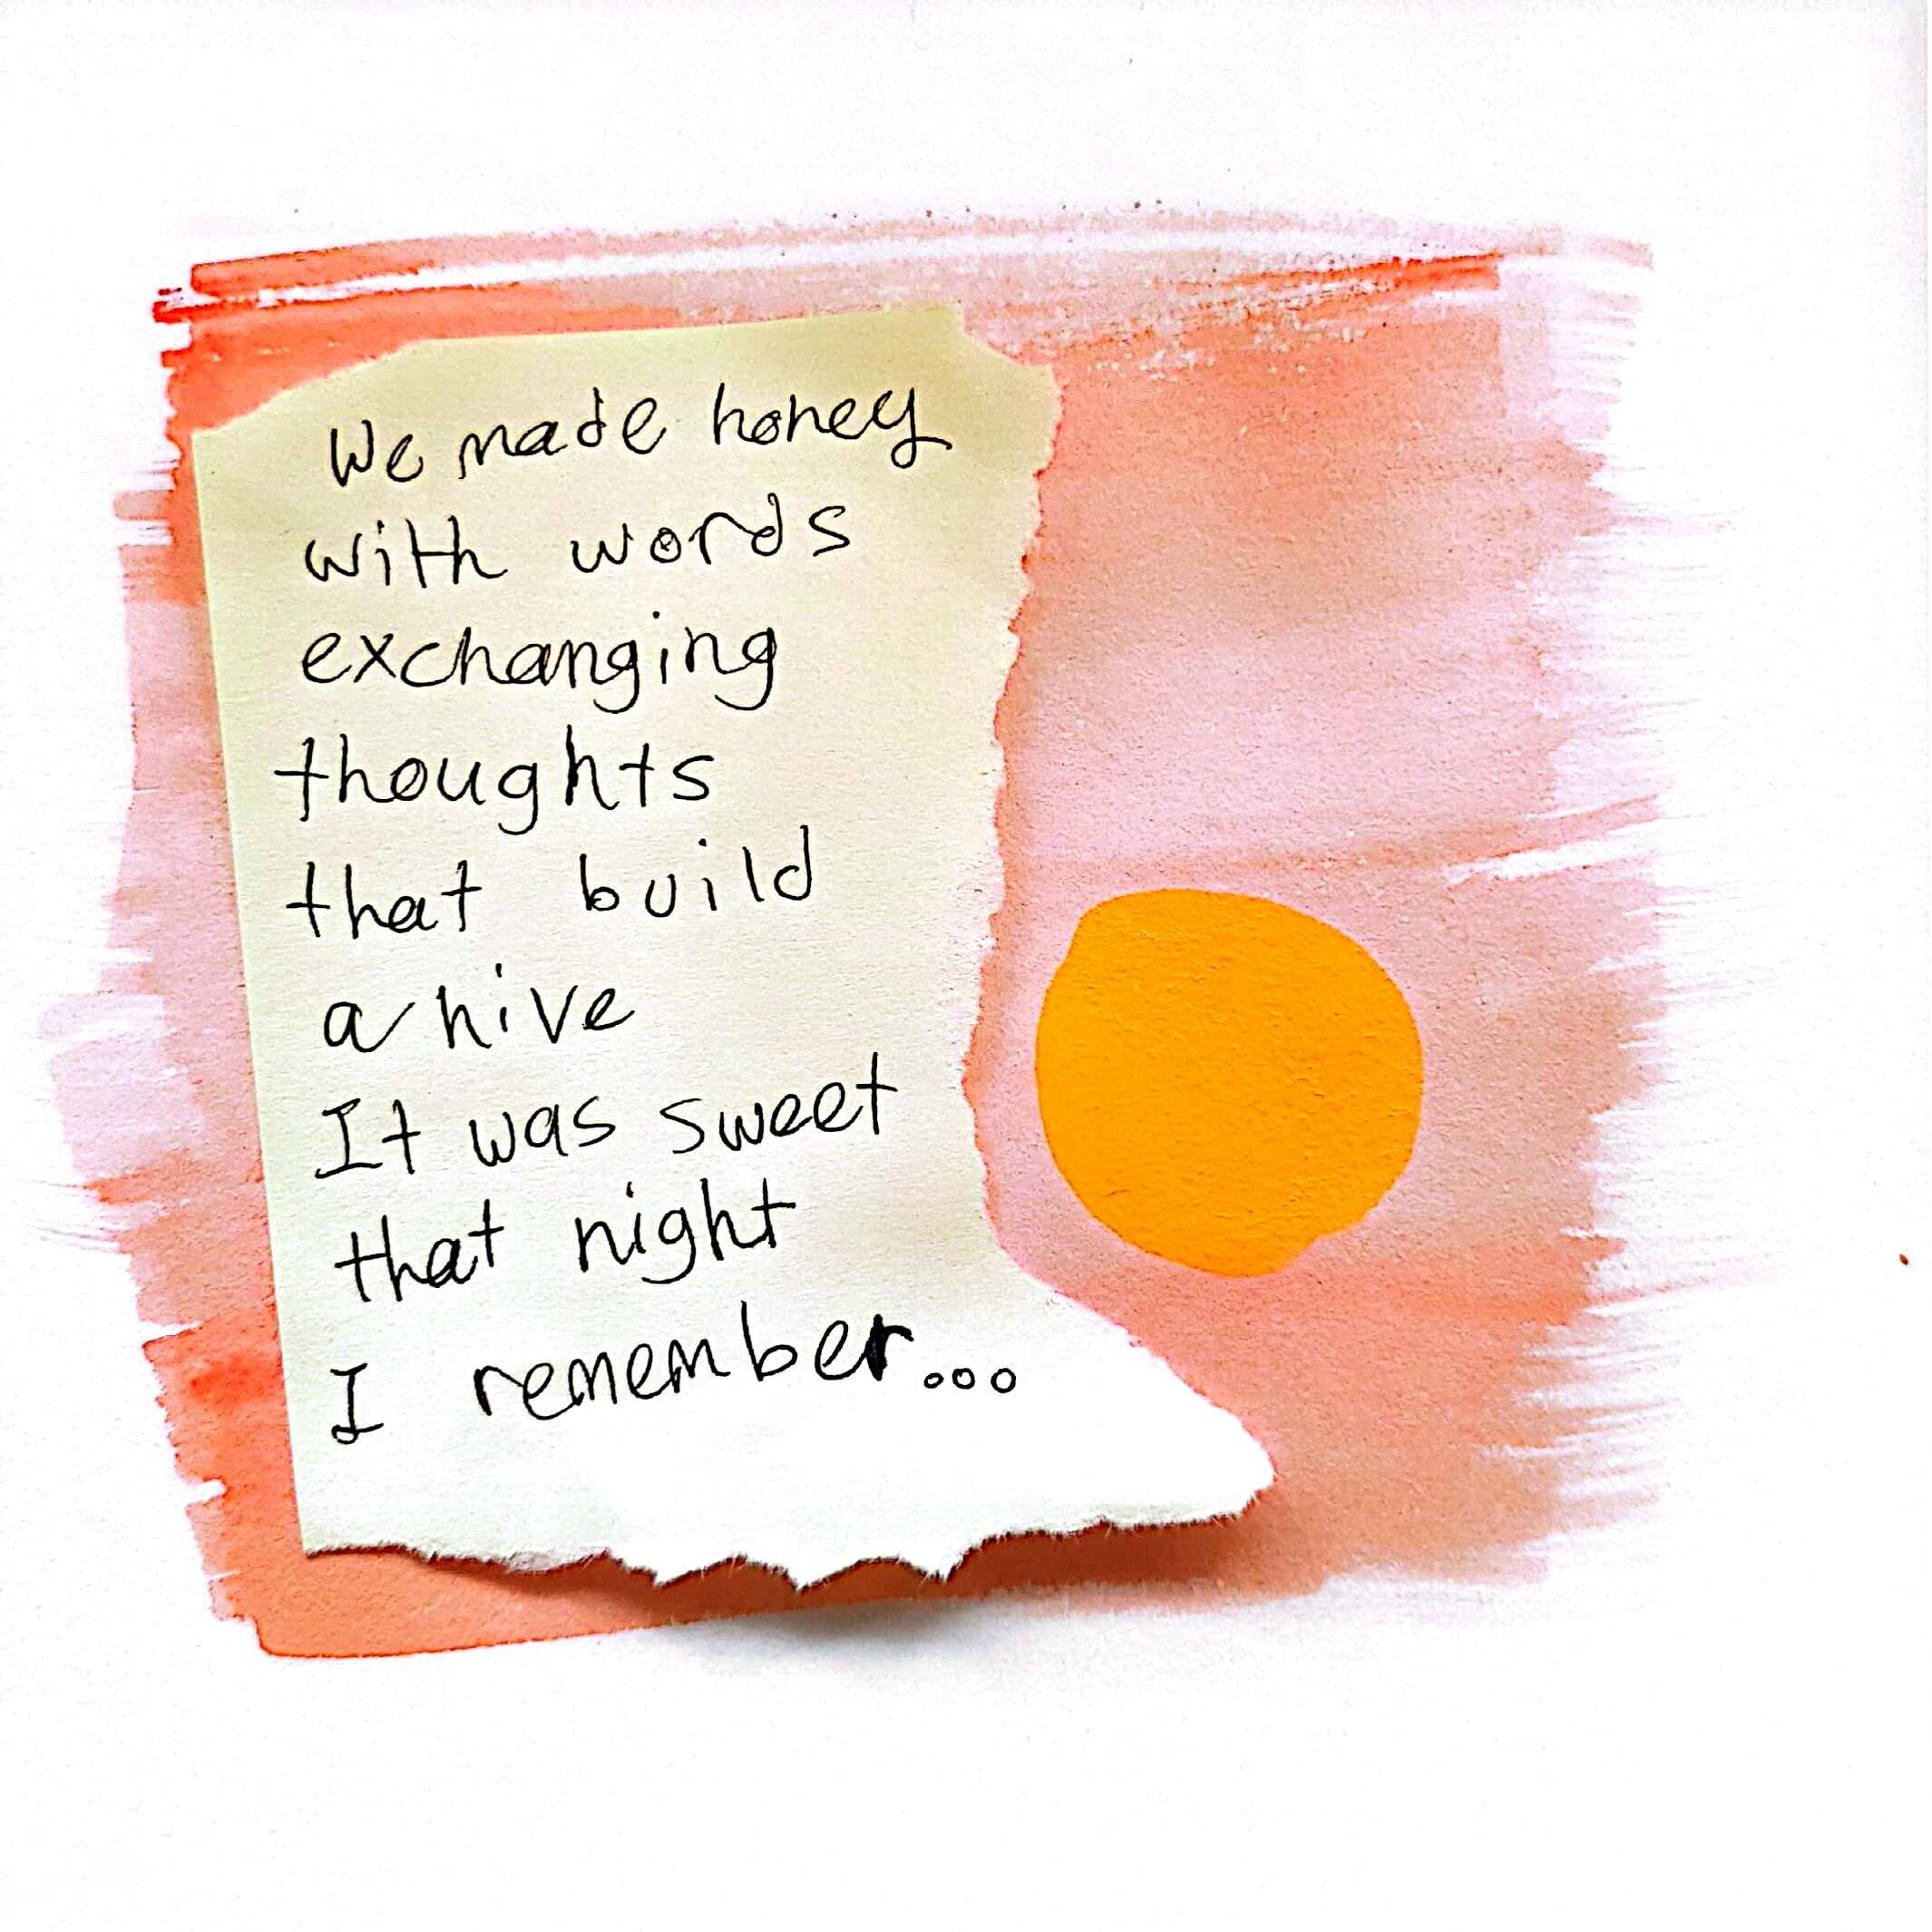 We made honey
with words
exchanging
thoughts
that build
a hive
It was sweet
that night
I remember...